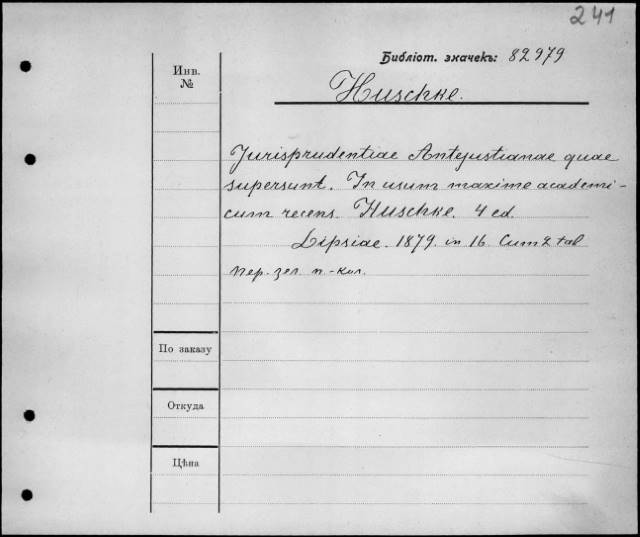 241
Библіот. значекъ: 82979
Инв.
№
Huschke.
Jurisprudentiae Antejustianae quae
supersunt. In usum maxime academi-
cum recens. Huschke. 4 ed.
Lipsiae. 1879. in 16. Cum 2 tab
пер. зел. п.-кол.
По заказу
Откуда
Цѣна